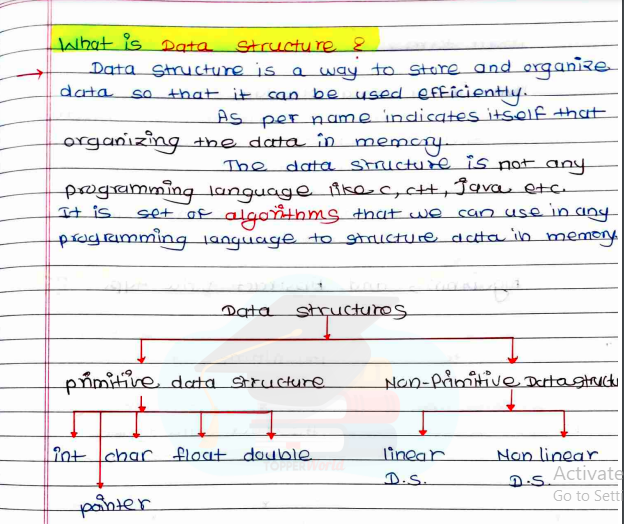 What is Data Structure ?
→ Data structure is a way to store and organize
data so that it can be used efficiently.
As per name indicates itself that
organizing the data in memory.
The data structure is not any
programming language like c, c++, Java etc.
It is set of algorithms that we can use in any
programming language to structure data in memory
Data structures
primitive data structure Non-Primitive Data struct
int char float double linear Non linear
D.S. D.S.
pointer
TOPPERWorld
Activate
Go to Sett